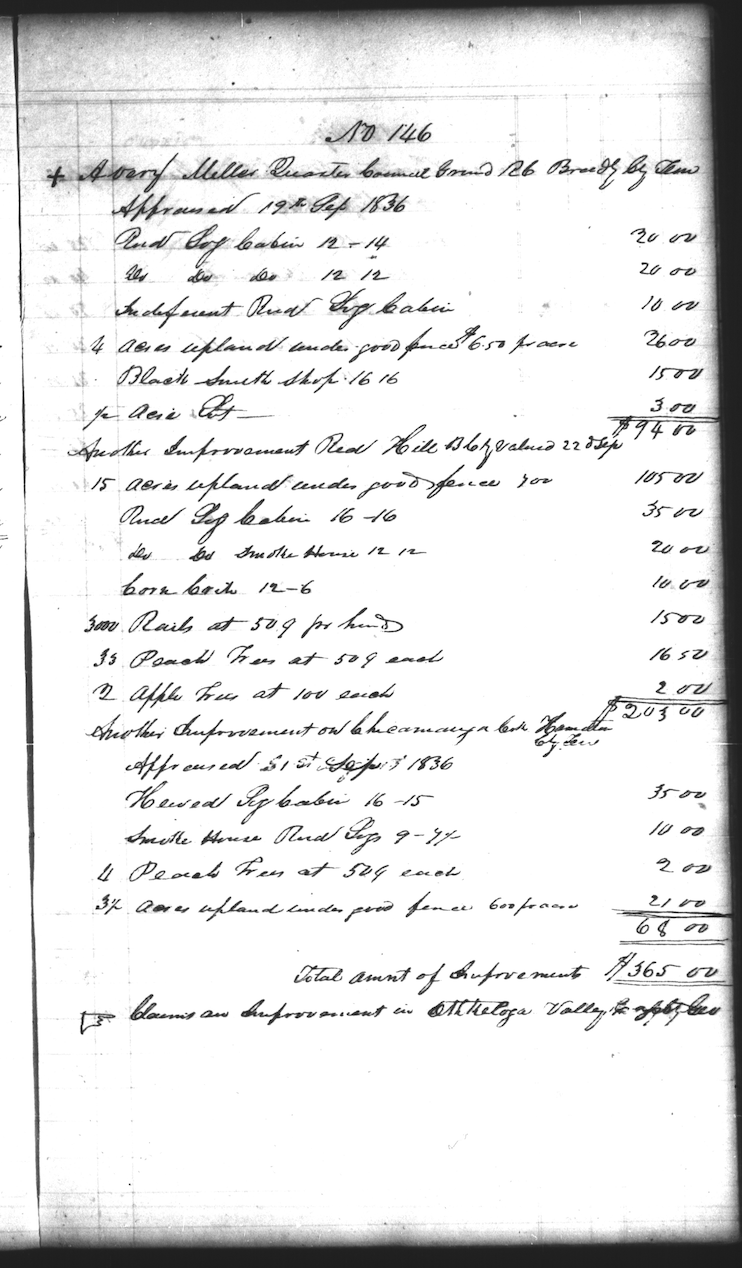 No 146
+ Avery Miller Quarter Council Grund 126 Bradly Cty Tenn
Appraised 19th Sep 1836
Rnd Log Cabin 12 - 14 20 00
Do Do Do 12 12 20 00
Indeferent Rnd Log Cabin 10 00
4 acres upland under good fence $6.50 pr acre 26 00
Black Smith Shop 16 16 15 00
1/2 Acre Lot 3 00
$94 00
Another Improvement Red Hill B Cty Valued 22d Sep
15 acres upland under good fence 700 105 00
Rnd Log Cabin 16 - 16 35 00
Do Do Smoke House 12 12 20 00
Corn Crib 12 - 6 10 00
3000 Rails at 50 ¢ pr hund 15 00
33 Peach Trees at 50 ¢ each 16 50
2 Apple Trees at 100 each 2 00
$203 00
Another Improvement on Chicamauga Crk Hamelton
Cty Ten
Appraised 21st Sep 1836
Hewed Log Cabin 16 - 15 35 00
Smoke House Rnd Logs 9 - 7 1/2 10 00
4 Peach Trees at 50 ¢ each 2 00
3 1/2 acres upland under good fence 600 pr acre 21 00
68 00
Total amnt of Improvements $365 00
Claims an Improvement in Oththeloga Valley Geo